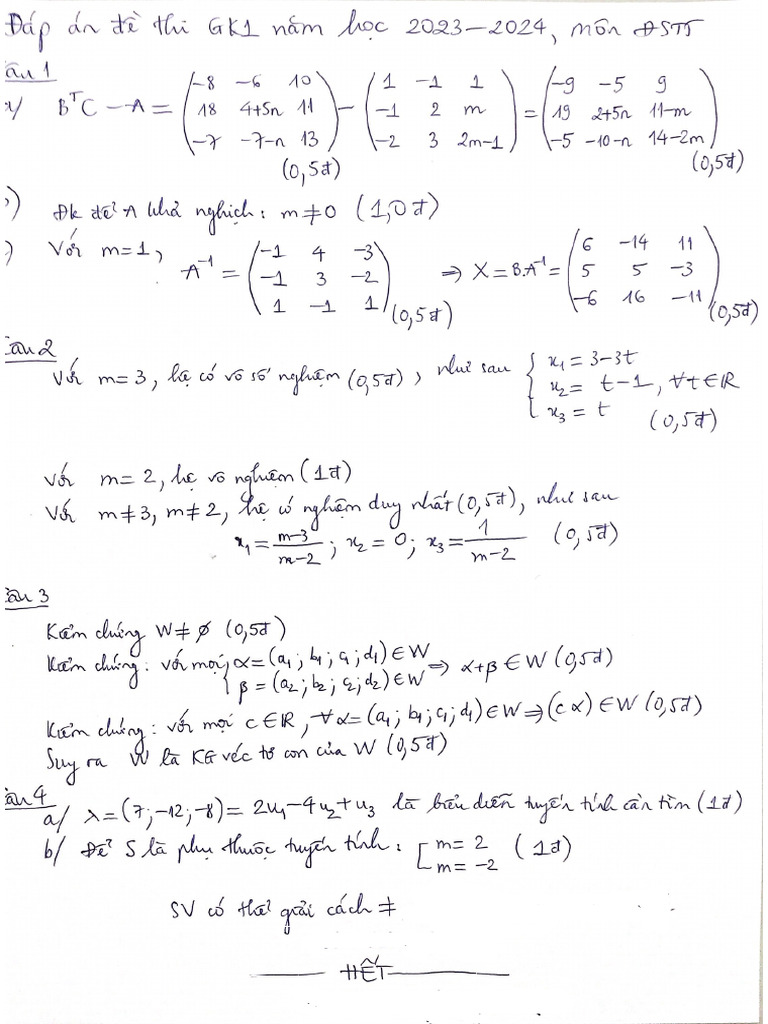 Đáp án đề thi GK1 năm học 2023-2024, môn ĐSTT
âu 1
a/ BᵀC - A = (-8 -6 10; 18 4+5n 11; -7 -7-n 13) - (1 -1 1; -1 2 m; -2 3 2m-1) = (-9 -5 9; 19 2+5n 11-m; -5 -10-n 14-2m)
(0,5đ) (0,5đ)
) Đk để A khả nghịch: m ≠ 0 (1,0đ)
) Với m=1, A⁻¹ = (-1 4 -3; -1 3 -2; 1 -1 1) (0,5đ) => X = B.A⁻¹ = (6 -14 11; 5 5 -3; -6 16 -11) (0,5đ)
âu 2
Với m=3, hệ có vô số nghiệm (0,5đ), như sau { x₁ = 3-3t
x₂ = t-1, ∀t∈ℝ
x₃ = t (0,5đ)
Với m=2, hệ vô nghiệm (1đ)
Với m≠3, m≠2, hệ có nghiệm duy nhất (0,5đ), như sau
x₁ = (m-3)/(m-2); x₂ = 0; x₃ = 1/(m-2) (0,5đ)
âu 3
Kiểm chứng W ≠ ∅ (0,5đ)
Kiểm chứng: với mọi { α = (a₁; b₁; c₁; d₁) ∈ W
β = (a₂; b₂; c₂; d₂) ∈ W => α+β ∈ W (0,5đ)
Kiểm chứng: với mọi c∈ℝ, ∀α = (a₁; b₁; c₁; d₁) ∈ W => (cα) ∈ W (0,5đ)
Suy ra W là KG véc tơ con của W (0,5đ)
âu 4
a/ λ = (7; -12; -8) = 2u₁ - 4u₂ + u₃ là biểu diễn tuyến tính cần tìm (1đ)
b/ Để S là phụ thuộc tuyến tính: [ m = 2
m = -2 (1đ)
SV có thể giải cách ≠
HẾT